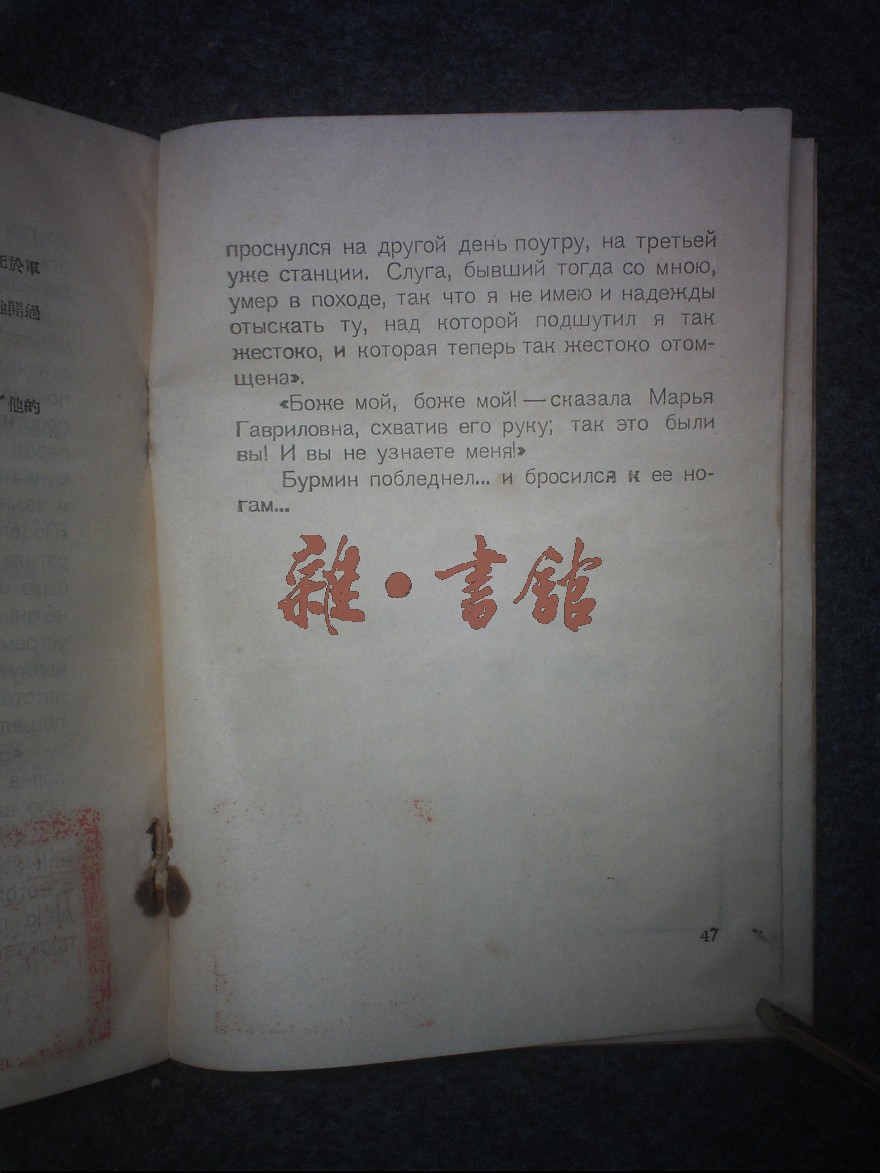 於軍
開過
他的
проснулся на другой день поутру, на третьей
уже станции. Слуга, бывший тогда со мною,
умер в походе, так что я не имею и надежды
отыскать ту, над которой подшутил я так
жестоко, и которая теперь так жестоко отом-
щена».
«Боже мой, боже мой! — сказала Марья
Гавриловна, схватив его руку; так это были
вы! И вы не узнаете меня!»
Бурмин побледнел... и бросился к ее но-
гам...
雜·書館
47